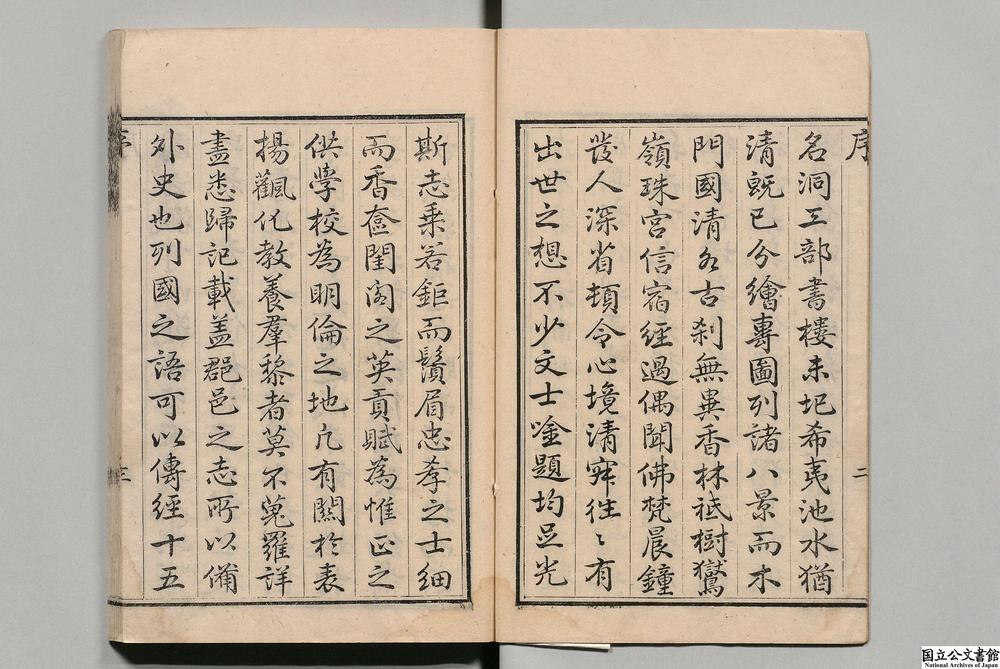 序
二
名洞工部書樓未圯希夷池水猶
清旣已分繪專圖列諸八景而木
門國清名古刹無異香林祗樹鷲
嶺珠宮信宿經過偶聞佛梵晨鐘
發人深省頓令心境清寧往〻有
出世之想不少文士唫題均足光
斯志乗若鉅而鬚眉忠孝之士細
而香奩閨閤之英貢賦為惟正之
供學校為明倫之地凡有關於表
揚颽化教養羣黎者莫不蒐羅詳
盡悉歸記載盖郡邑之志所以備
外史也列國之語可以傳經十五
序
三
国立公文書館
National Archives of Japan